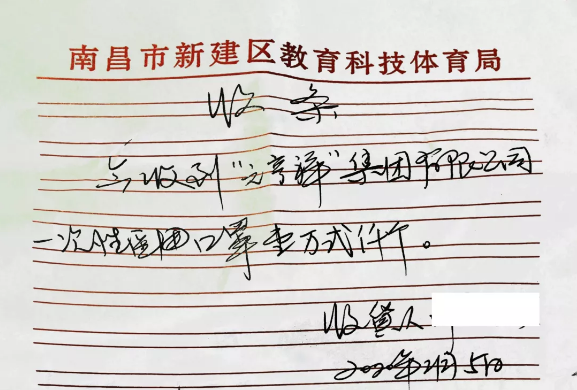 南昌市新建区教育科技体育局
收条
今收到“元亨祥”集团有限公司
一次性医用口罩壹万弍仟个。
收货人
2020年2月5日